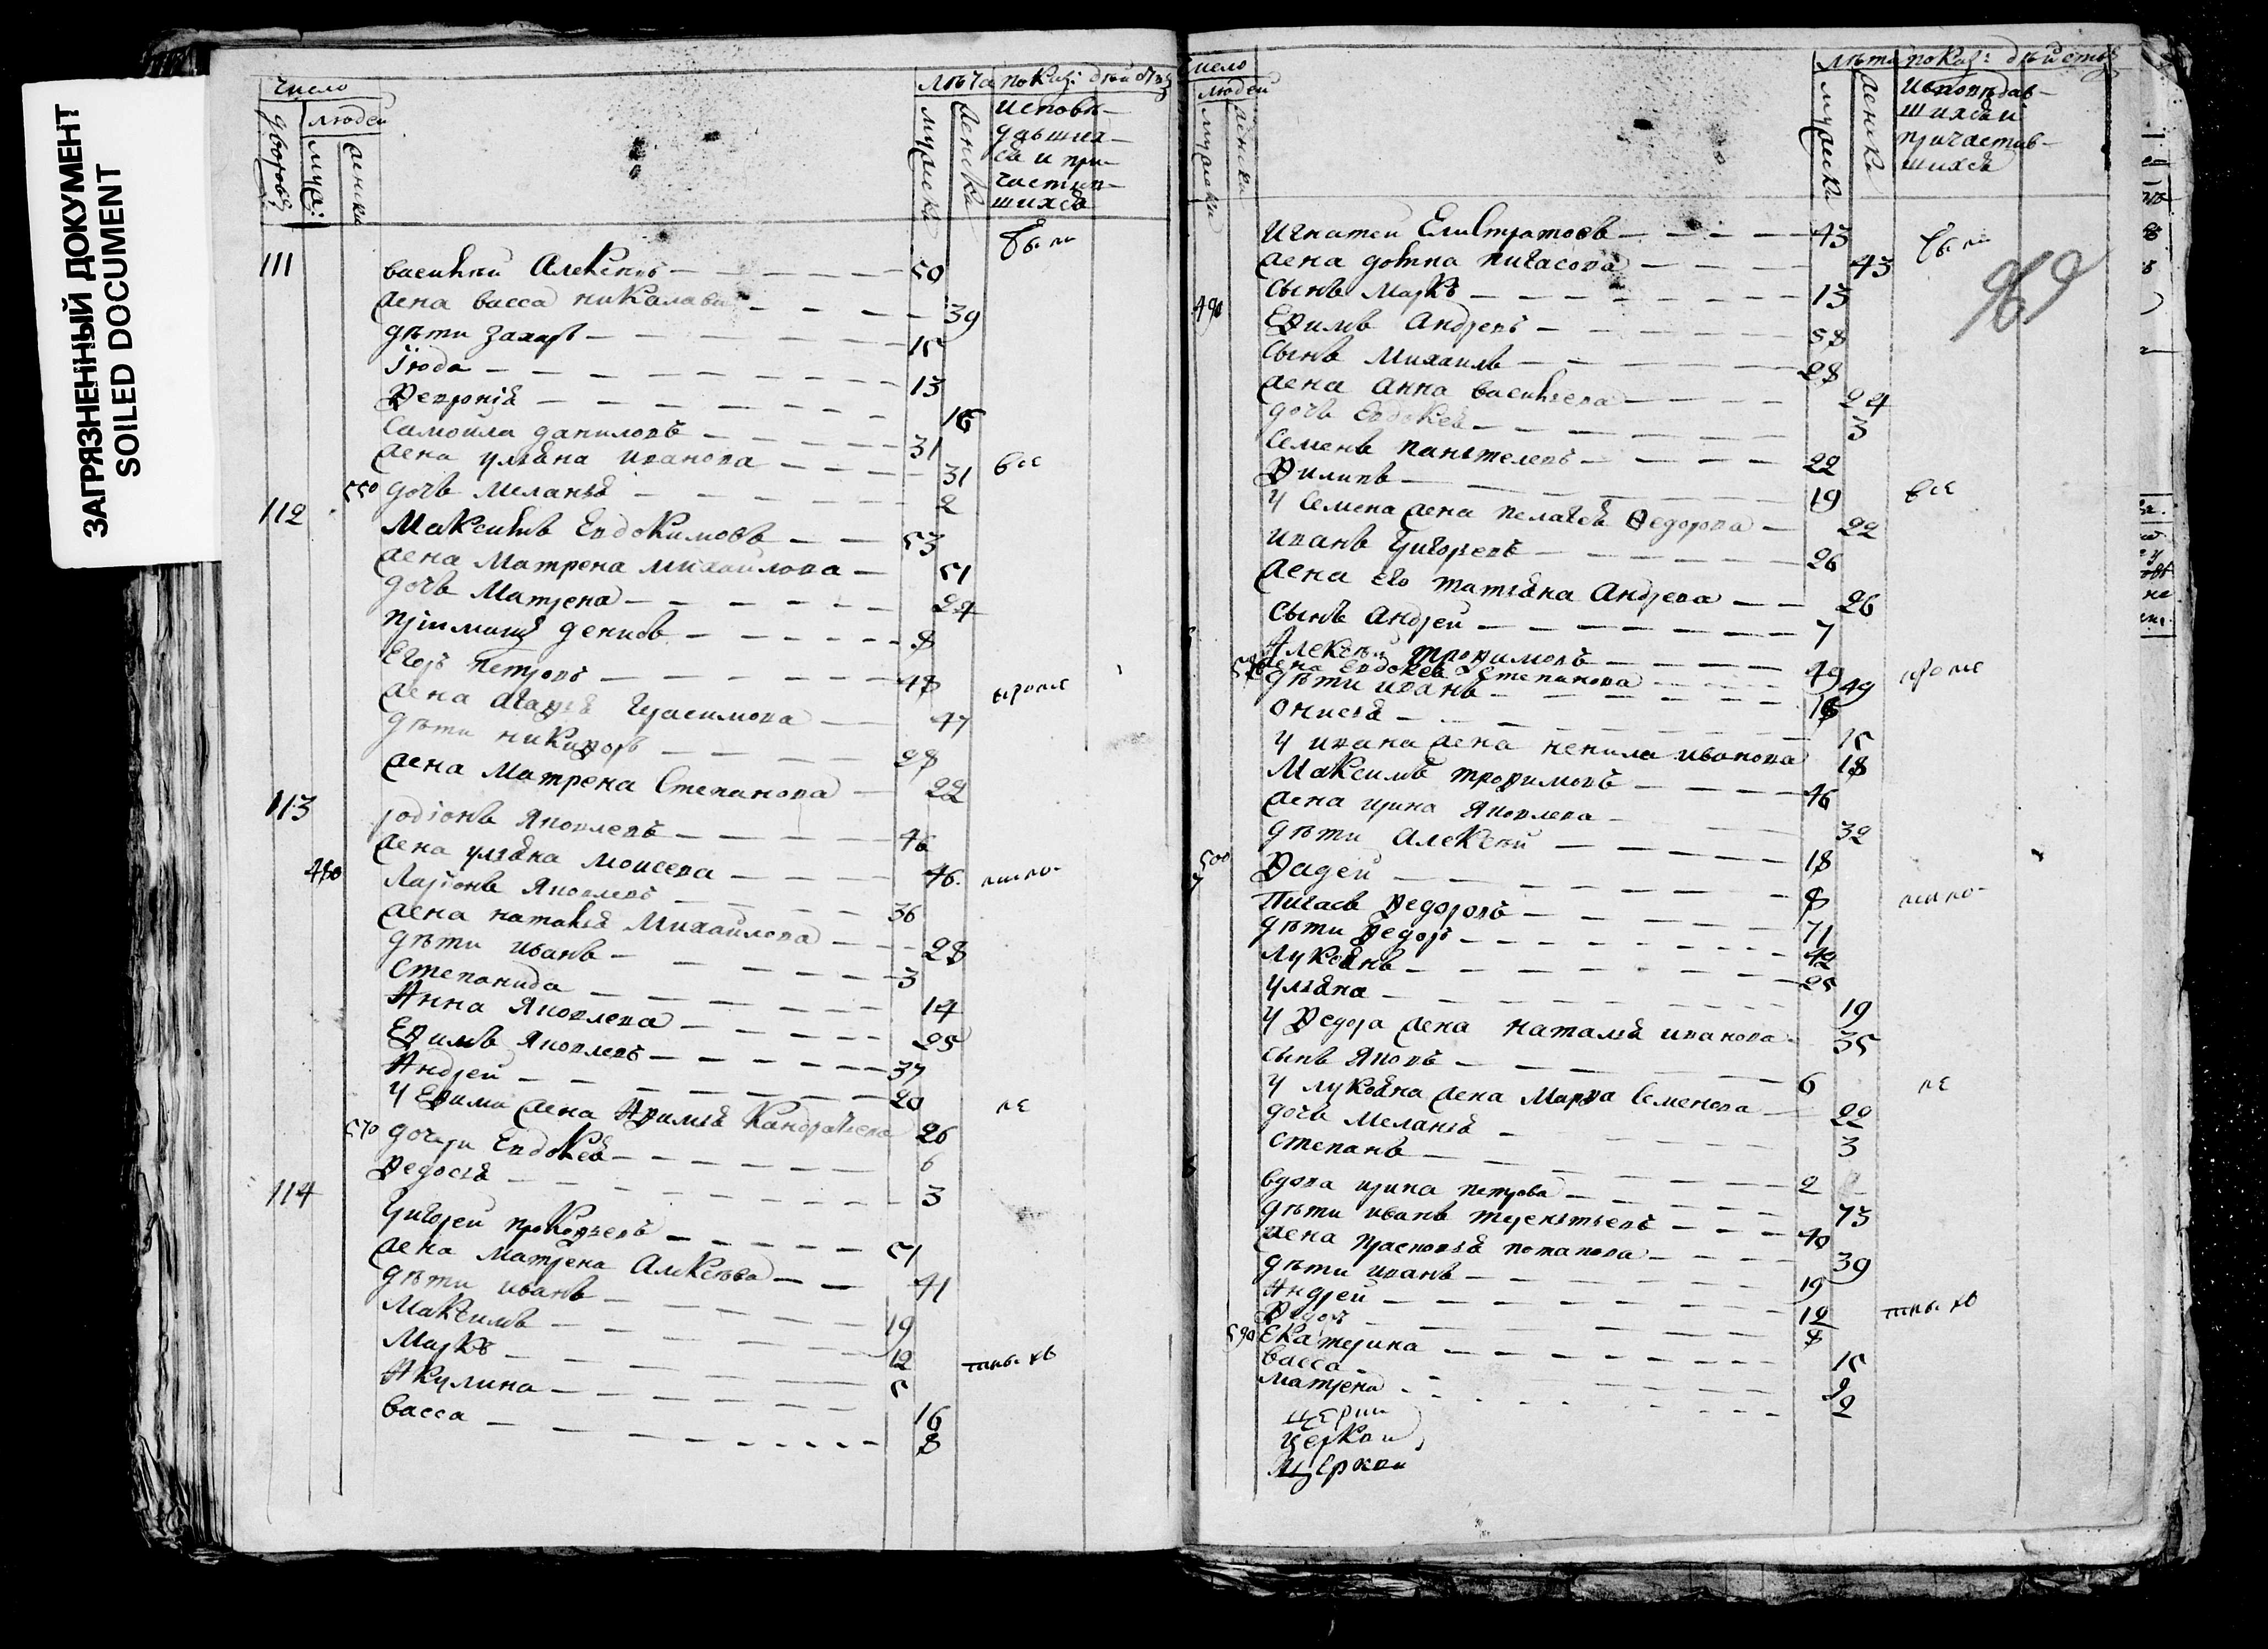 ЗАГРЯЗНЕННЫЙ ДОКУМЕНТ
SOILED DOCUMENT
число
людей
дворовъ
муж:
женска
лѣта показ: дѣйств
мужеска
женска
исповѣ-
давших-
ся и при-
частив-
шихся
были
111 василий Алексѣевъ 50
жена васса николаева 39
дѣти Захаръ 15
Іюда 13
Ѳевронія 16
Самоила даниловъ 31
жена ульяна иванова 31 все
550 дочь Меланья 2
112 Максимъ Евдокимовъ 53
жена Матрена михайлова 51
дочь Матрена 24
пріимышъ денисъ 8
Егоръ петровъ 48
жена Агафья Герасимова 47
дѣти никифоръ 28
жена Матрена Степанова 22
113 родіонъ Яковлевъ 46
жена ульяна моисева 46
480 Ларіонъ Яковлевъ 36
жена наталья Михайлова 28
дѣти иванъ 3
Степанида 14
Анна Яковлева 25
Ефимъ Яковлевъ 37
Андрей 20
У Ефима жена Афимья Кандратьева 26
570 дочери Евдокея 6
Ѳедосья 3
114 Григорей прокофьевъ 51
жена Матрена Алексѣева 41
дѣти иванъ 19
Максимъ 12
Маркъ 5
Акулина 16
васса 8
число
людей
мужеска
женска
лѣта показ: дѣйств
мужеска
женска
Исповѣдав-
шихся и
причастив-
шихся
были
969
Игнатеи Елистратовъ 43
жена домна пигасова 43
сынъ Маркъ 13
490 Ефимъ Андреевъ 58
сынъ Михаилъ 28
жена анна васильева 24
дочь Евдокея 3
Семенъ пантелеевъ 22
Филипъ 19
У Семена жена пелагея Федорова 22
все
иванъ Григорьевъ 26
жена его татьяна Андреева 26
сынъ Андрей 7
Алексѣй трофимовъ 49
жена Евдокея Степанова 49
дѣти иванъ 18
Онисья 15
у ивана жена ненила иванова 18
Максимъ трофимовъ 46
жена ирина Яковлева 32
дѣти Алексѣй 18
500 Фадей 8
Пигасъ Федоровъ 71
дѣти Федоръ 42
Лукьянъ 25
Ульяна 19
У Федора жена наталья иванова 35
сынъ Яковъ 6
У лукьяна жена Марфа Семенова 22
дочь Меланья 3
Степанъ 2
вдова ирина петрова 73
дѣти иванъ терентьевъ 40
жена прасковья потапова 39
дѣти иванъ 19
Андрей 12
Федоръ 8
590 Екатерина 15
васса 9
матрена 2
церкви
церкви